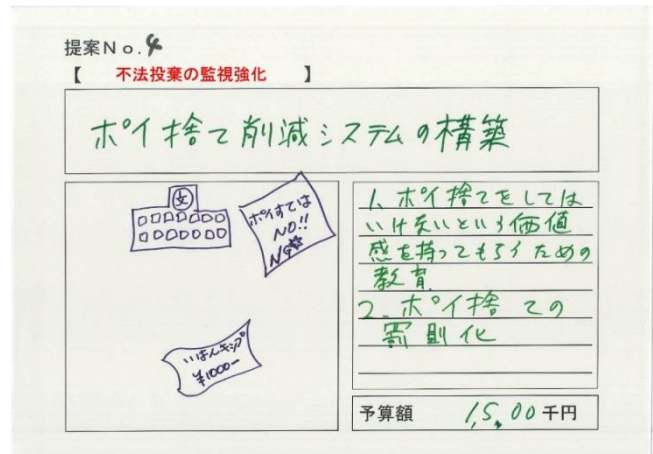 提案No.4
【 不法投棄の監視強化 】
ポイ捨て削減システムの構築
文
ポイすては
NO!!
いはんキップ
¥1000-
1、ポイ捨てをしては
いけないという価値
感を持ってもらうための
教育
2、ポイ捨ての
罰則化
予算額 1,5,00千円